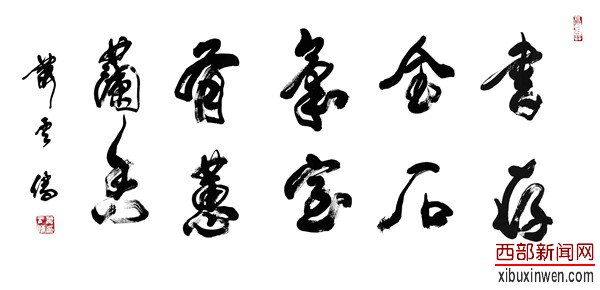 書存
金石
氣室
有蕙
蘭香
西部新闻网
xibuxinwen.com